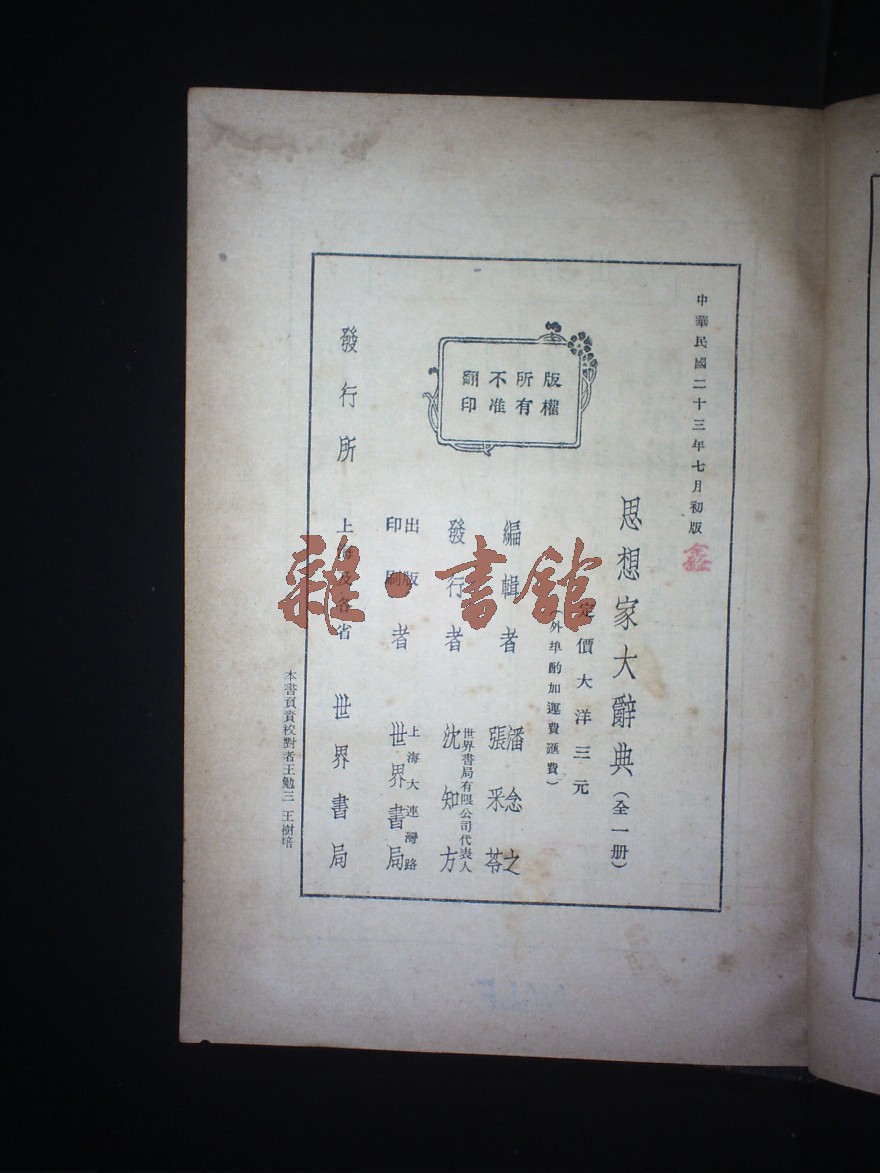 中華民國二十三年七月初版
思想家大辭典(全一册)
定價大洋三元
(外埠酌加運費滙費)
版權
所有
不准
翻印
編輯者
潘念之
張釆苓
發行者
世界書局有限公司代表人
沈知方
出版
印刷
者
上海大連灣路
世界書局
發行所
上海及各省
世界書局
本書負責校對者王勉三 王樹培
雜·書館